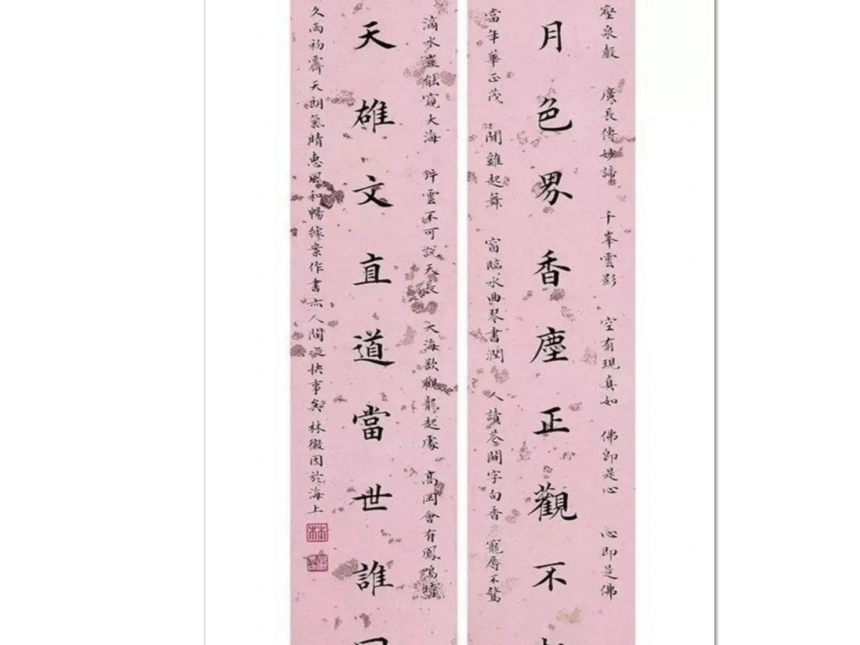 壑泉聲 廣長傳妙諦 千峯雲影 空有現真如 佛即是心 心即是佛
月色界香塵正觀不
當年華正茂 聞雞起舞 窗臨水曲琴書潤 人讀花間字句香 寵辱不驚
滴水豈能窺大海 片雲不可說天長 大海欲觀龍起處 高岡會有鳳鳴時
天雄文直道當世誰
久雨初霽天朗氣晴惠風和暢據案作書亦人間之快事矣林徽因於海上